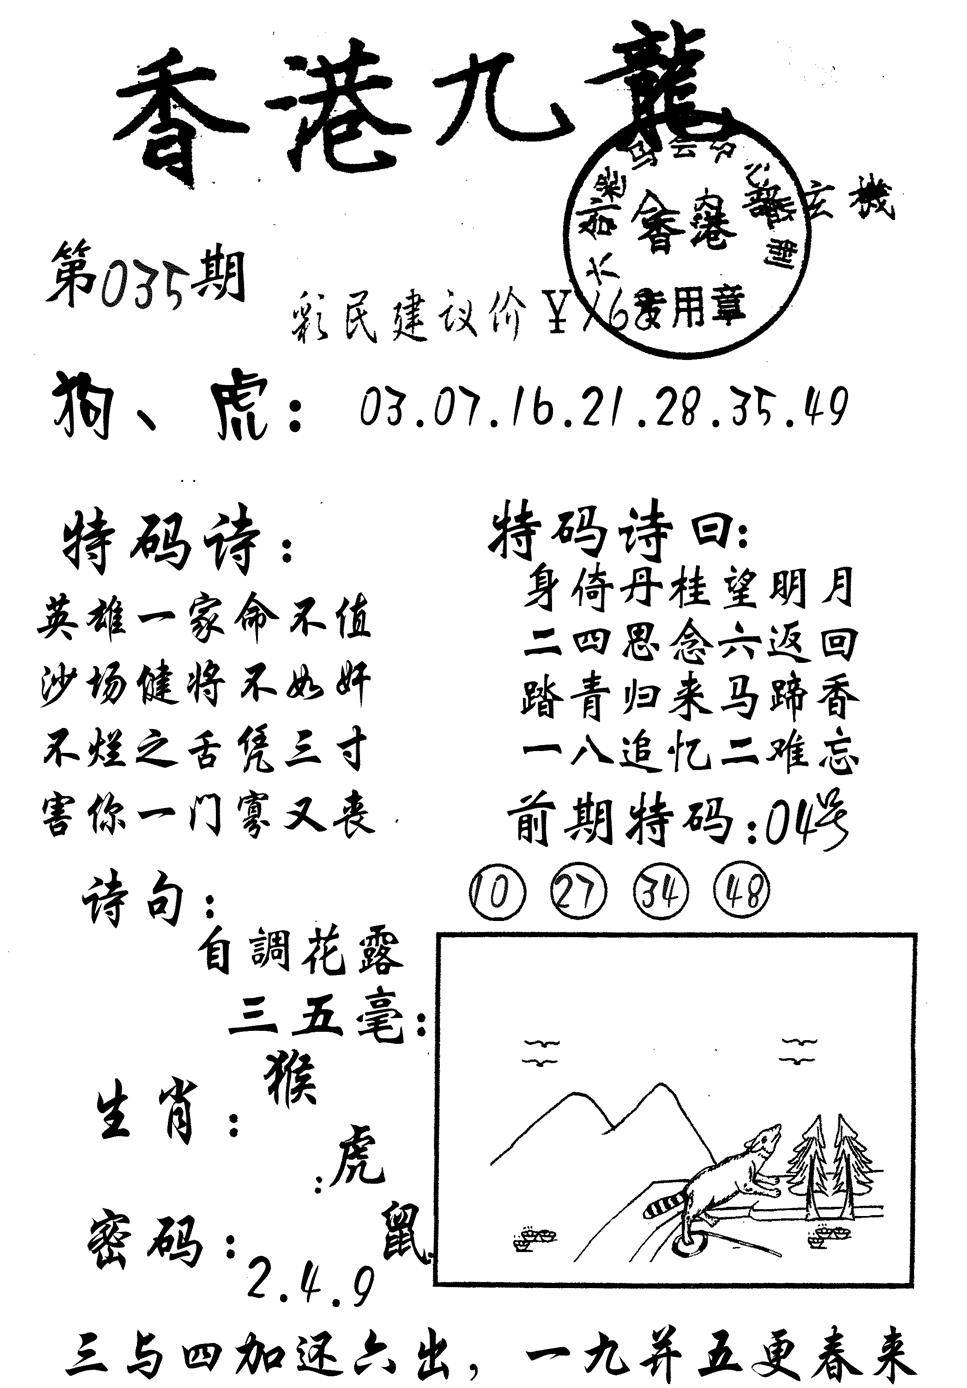 香港九龍
玄機
香港
专用章
第035期
彩民建议价￥168
狗、虎：03.07.16.21.28.35.49
特码诗：
英雄一家命不值
沙场健将不如奸
不烂之舌凭三寸
害你一门寡又丧
特码诗曰：
身倚丹桂望明月
二四思念六返回
踏青归来马蹄香
一八追忆二难忘
前期特码：04号
10 27 34 48
诗句：
自調花露
三五毫：
生肖：猴
虎
鼠
密码：
2.4.9
三与四加还六出，一九并五更春来